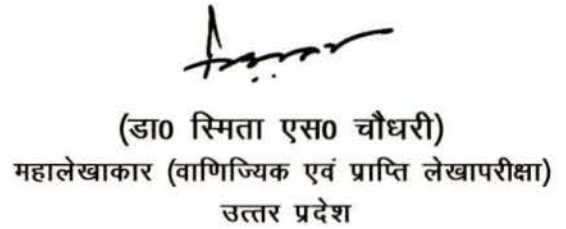 (डा0 स्मिता एस0 चौधरी)
महालेखाकार (वाणिज्यिक एवं प्राप्ति लेखापरीक्षा)
उत्तर प्रदेश